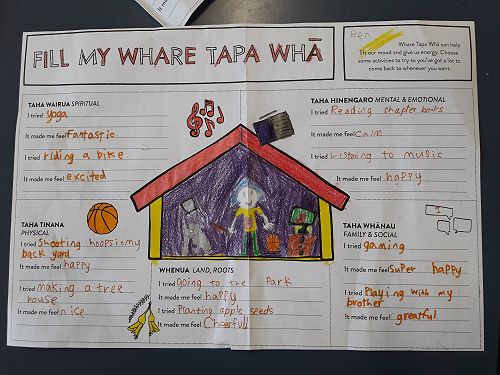 FILL MY WHARE TAPA WHĀ
Ben
Whare Tapa Whā can help
lift our mood and give us energy. Choose
some activities to try so you've got a list to
come back to whenever you want.
TAHA WAIRUA SPIRITUAL
I tried yoga
It made me feel Fantastic
I tried riding a bike
It made me feel excited
TAHA HINENGARO MENTAL & EMOTIONAL
I tried Reading chapter books
It made me feel calm
I tried Listening to music
It made me feel happy
TAHA TINANA
PHYSICAL
I tried Shooting hoops in my
back yard
It made me feel happy
I tried making a tree
house
It made me feel nice
WHENUA LAND, ROOTS
I tried Going to the Park
It made me feel happy
I tried Planting apple seeds
It made me feel Cheerfull
TAHA WHĀNAU
FAMILY & SOCIAL
I tried gaming
It made me feel Super happy
I tried Playing with my
brother
It made me feel greatful